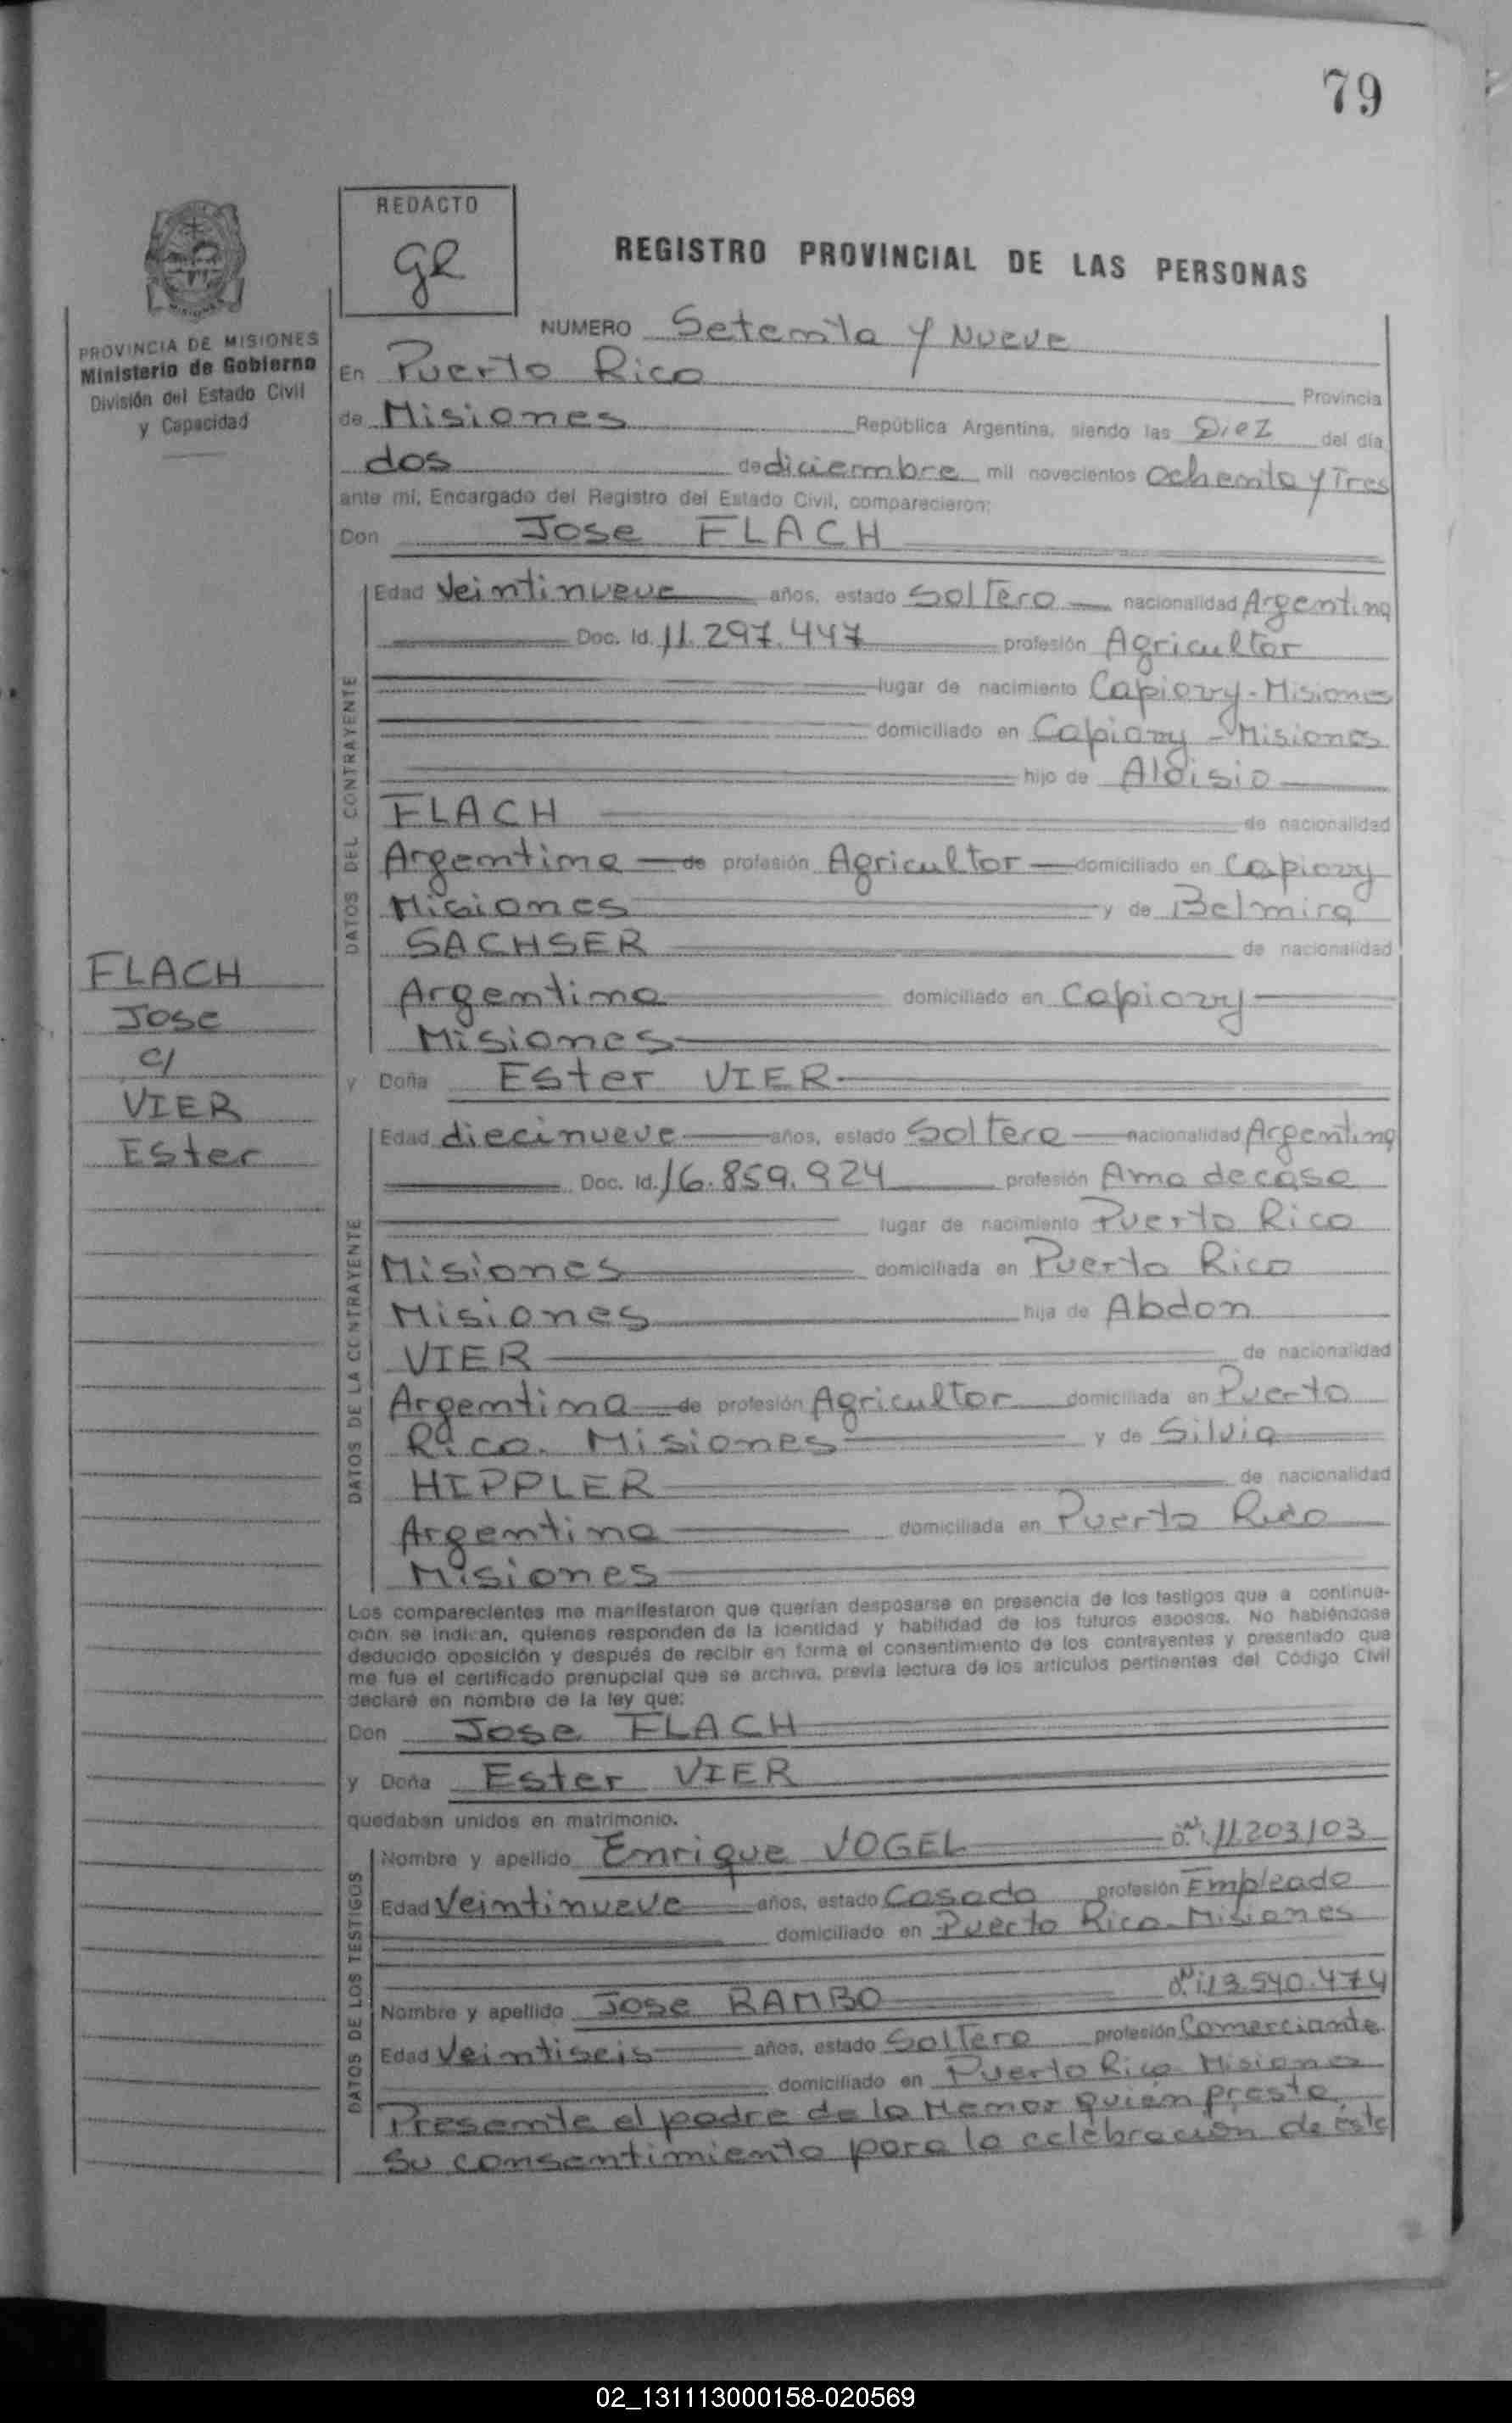 79
REDACTO
gr
REGISTRO PROVINCIAL DE LAS PERSONAS
PROVINCIA DE MISIONES
Ministerio de Gobierno
División del Estado Civil
y Capacidad
NUMERO Setenta y Nueve
En Puerto Rico Provincia
de Misiones República Argentina, siendo las Diez del día
dos de diciembre mil novecientos ochenta y Tres
ante mí, Encargado del Registro del Estado Civil, comparecieron:
Don Jose FLACH
DATOS DEL CONTRAYENTE
Edad Veintinueve años, estado Soltero nacionalidad Argentina
Doc. Id. 11.297.447 profesión Agricultor
lugar de nacimiento Capiovy - Misiones
domiciliado en Capiovy - Misiones
hijo de Aloisio
FLACH de nacionalidad
Argentina de profesión Agricultor domiciliado en Capiovy
Misiones y de Belmira
SACHSER de nacionalidad
Argentina domiciliado en Capiovy
Misiones
FLACH
Jose
c/
VIER
Ester
y Doña Ester VIER
DATOS DE LA CONTRAYENTE
Edad diecinueve años, estado Soltera nacionalidad Argentina
Doc. Id. 16.859.924 profesión Ama de casa
lugar de nacimiento Puerto Rico
Misiones domiciliada en Puerto Rico
Misiones hija de Abdon
VIER de nacionalidad
Argentina de profesión Agricultor domiciliada en Puerto
Rico. Misiones y de Silvia
HIPPLER de nacionalidad
Argentina domiciliada en Puerto Rico
Misiones
Los comparecientes me manifestaron que querían desposarse en presencia de los testigos que a continua-
ción se indican, quienes responden de la identidad y habilidad de los futuros esposos. No habiéndose
deducido oposición y después de recibir en forma el consentimiento de los contrayentes y presentado que
me fue el certificado prenupcial que se archiva, previa lectura de los artículos pertinentes del Código Civil
declaré en nombre de la ley que:
Don Jose FLACH
y Doña Ester VIER
quedaban unidos en matrimonio.
DATOS DE LOS TESTIGOS
Nombre y apellido Enrique VOGEL D.N.I. 11203103
Edad Veintinueve años, estado Casado profesión Empleado
domiciliado en Puerto Rico Misiones
Nombre y apellido Jose RAMBO D.N.I. 13.540.474
Edad Veintiseis años, estado Soltero profesión Comerciante
domiciliado en Puerto Rico Misiones
Presente el padre de la Menor quién presta
su consentimiento para la celebración de éste
02_131113000158-020569